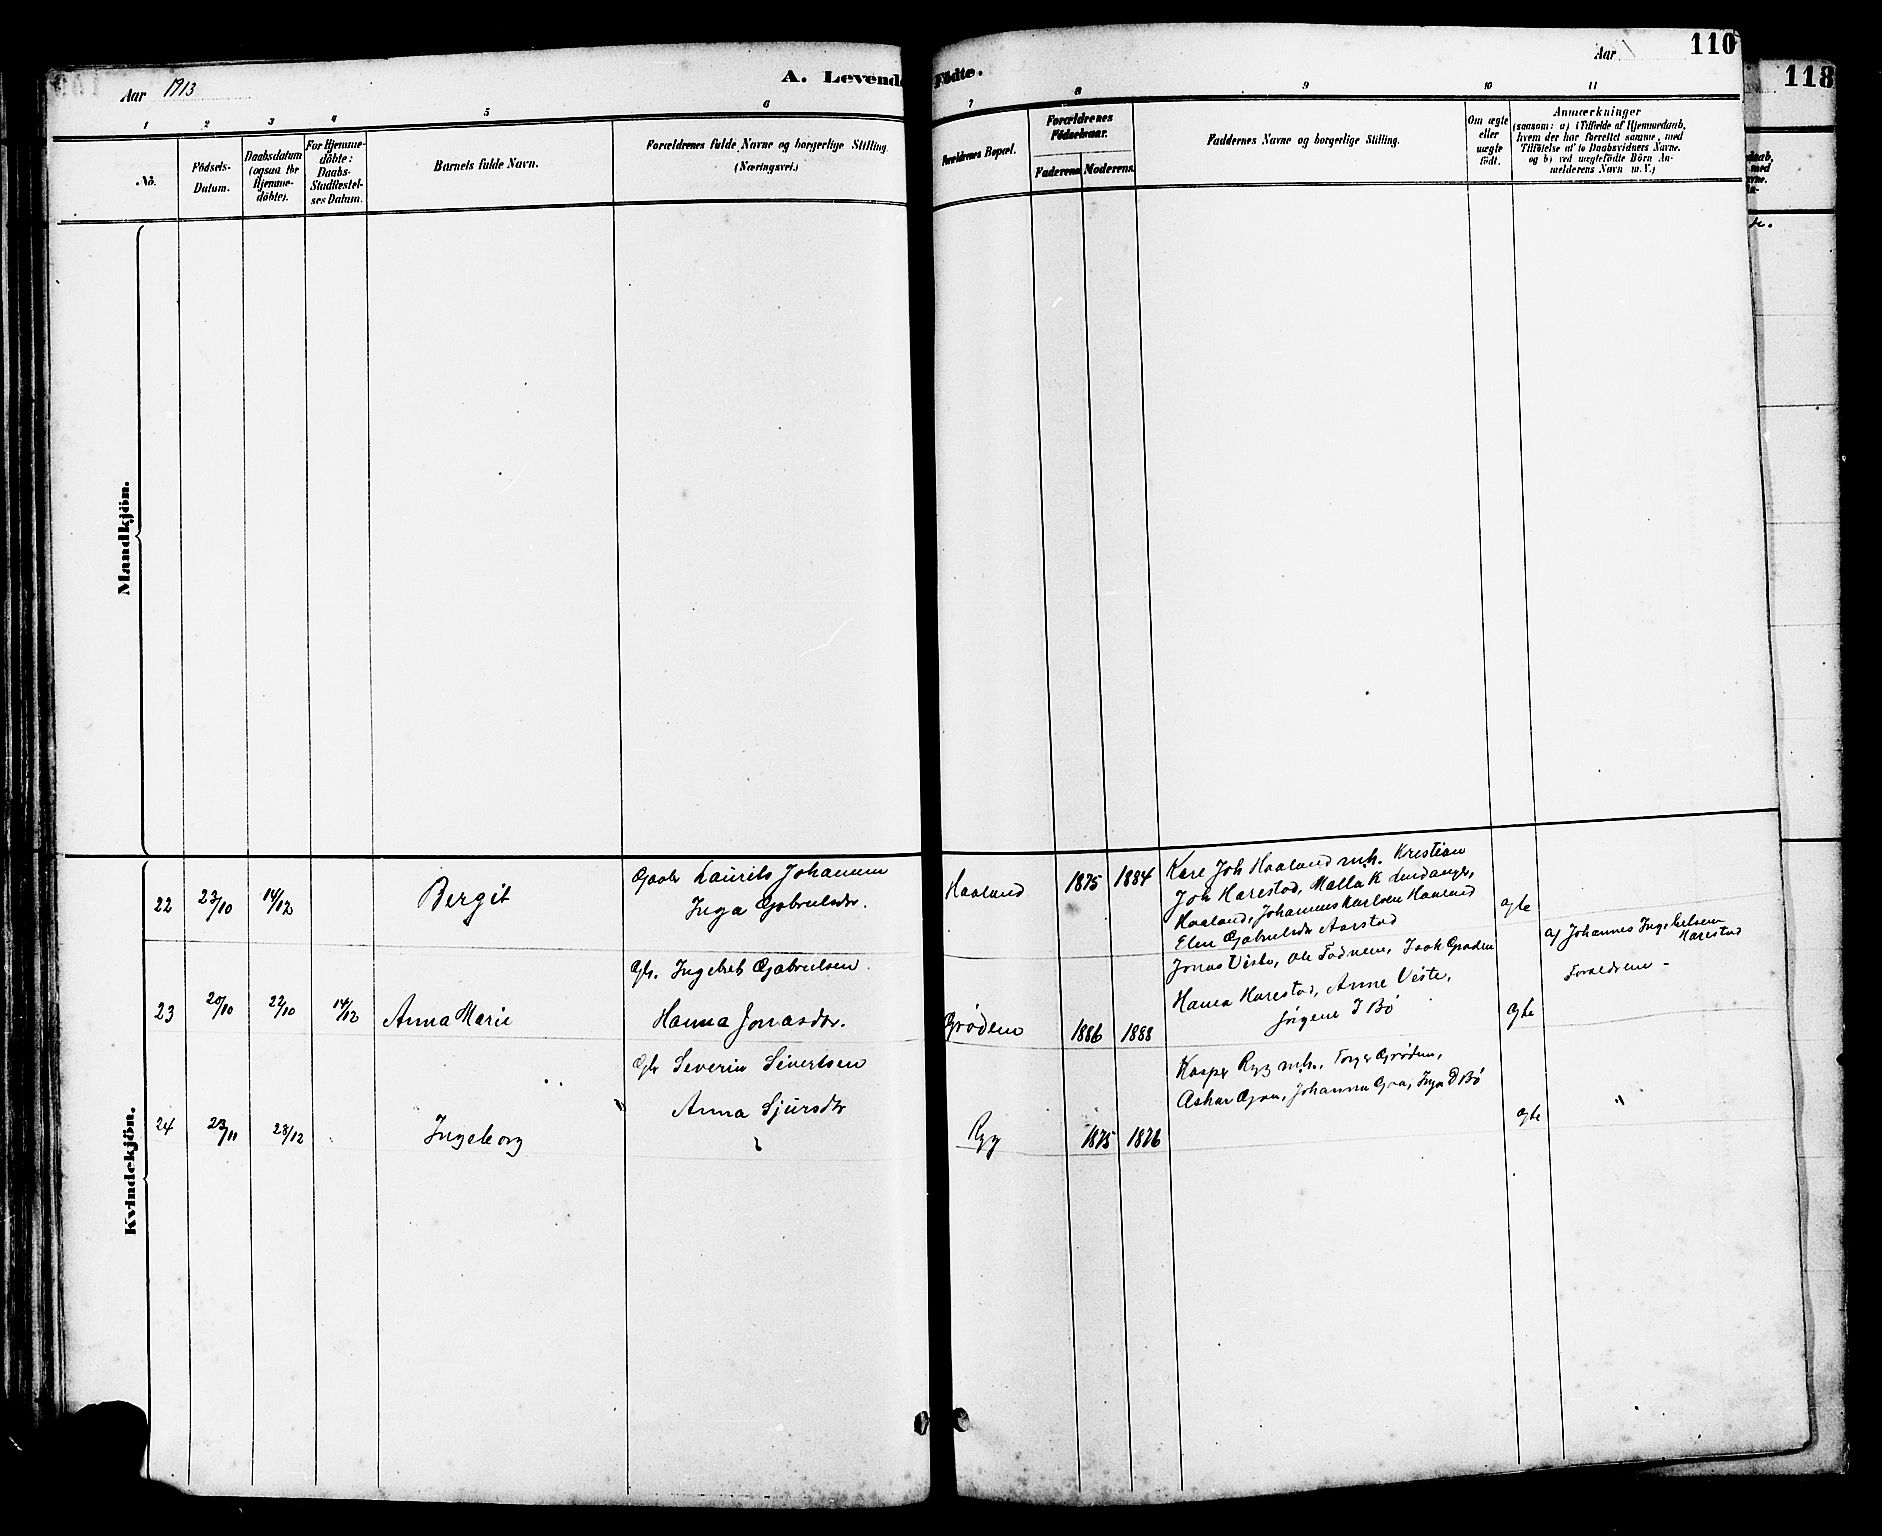 Aar 1913
A. Levende Födte.
Aar
110
118
1 2 3 4 5 6 7 8 9 10 11
No.
Födsels-Datum.
Daabsdatum (ogsaa for Hjemmedöbte).
For Hjemmedöbte: Daabs-Stadfæstelses Datum.
Barnets fulde Navn.
Forældrenes fulde Navne og borgerlige Stilling (Næringsvei.)
Forældrenes Bopæl.
Forældrenes Födselsaar.
Faderens Moderens
Faddernes Navne og borgerlige Stilling.
Om ægte eller uægte födt.
Anmærkninger
(saasom: a) i Tilfælde af Hjemmedaab, hvem der har forrettet samme, med Tilföielse af to Daabsvidners Navne, og b) ved uægtefödte Börn Anmelderens Navn m.V.)
Mandkjön.
Kvindekjön.
22 23/10 14/12 Bergit
Gaabr Laurits Johannesen
Inga Gabrielsdr.
Haaland 1875 1884
Kare Joh Haaland m.h. Kristian
Joh Harestad, Malla K
Haaland, Johannes Karlsen Haaland
Elen Gabrielsdr Aarstad
ægte
23 20/10 22/10 14/12 Anna Marie
Gbr. Ingebret Gabrielsen
Hanna Jonasdr.
Grødem 1886 1888
Jonas Viste, Ole Todnem, Isak Grødem
Hanna Harestad, Anne Viste,
Jørgene I Bø
ægte
af Johannes Ingebretsen
Harestad
Forældrene -
24 23/11 28/12 Ingeborg
Gbr Severin Sivertsen
Anna Sjursdr
Ryg 1875 1876
Kasper Ryg m.h., Torger Grødem,
Askar Goa, Johanna Goa, Inga D Bø
ægte "